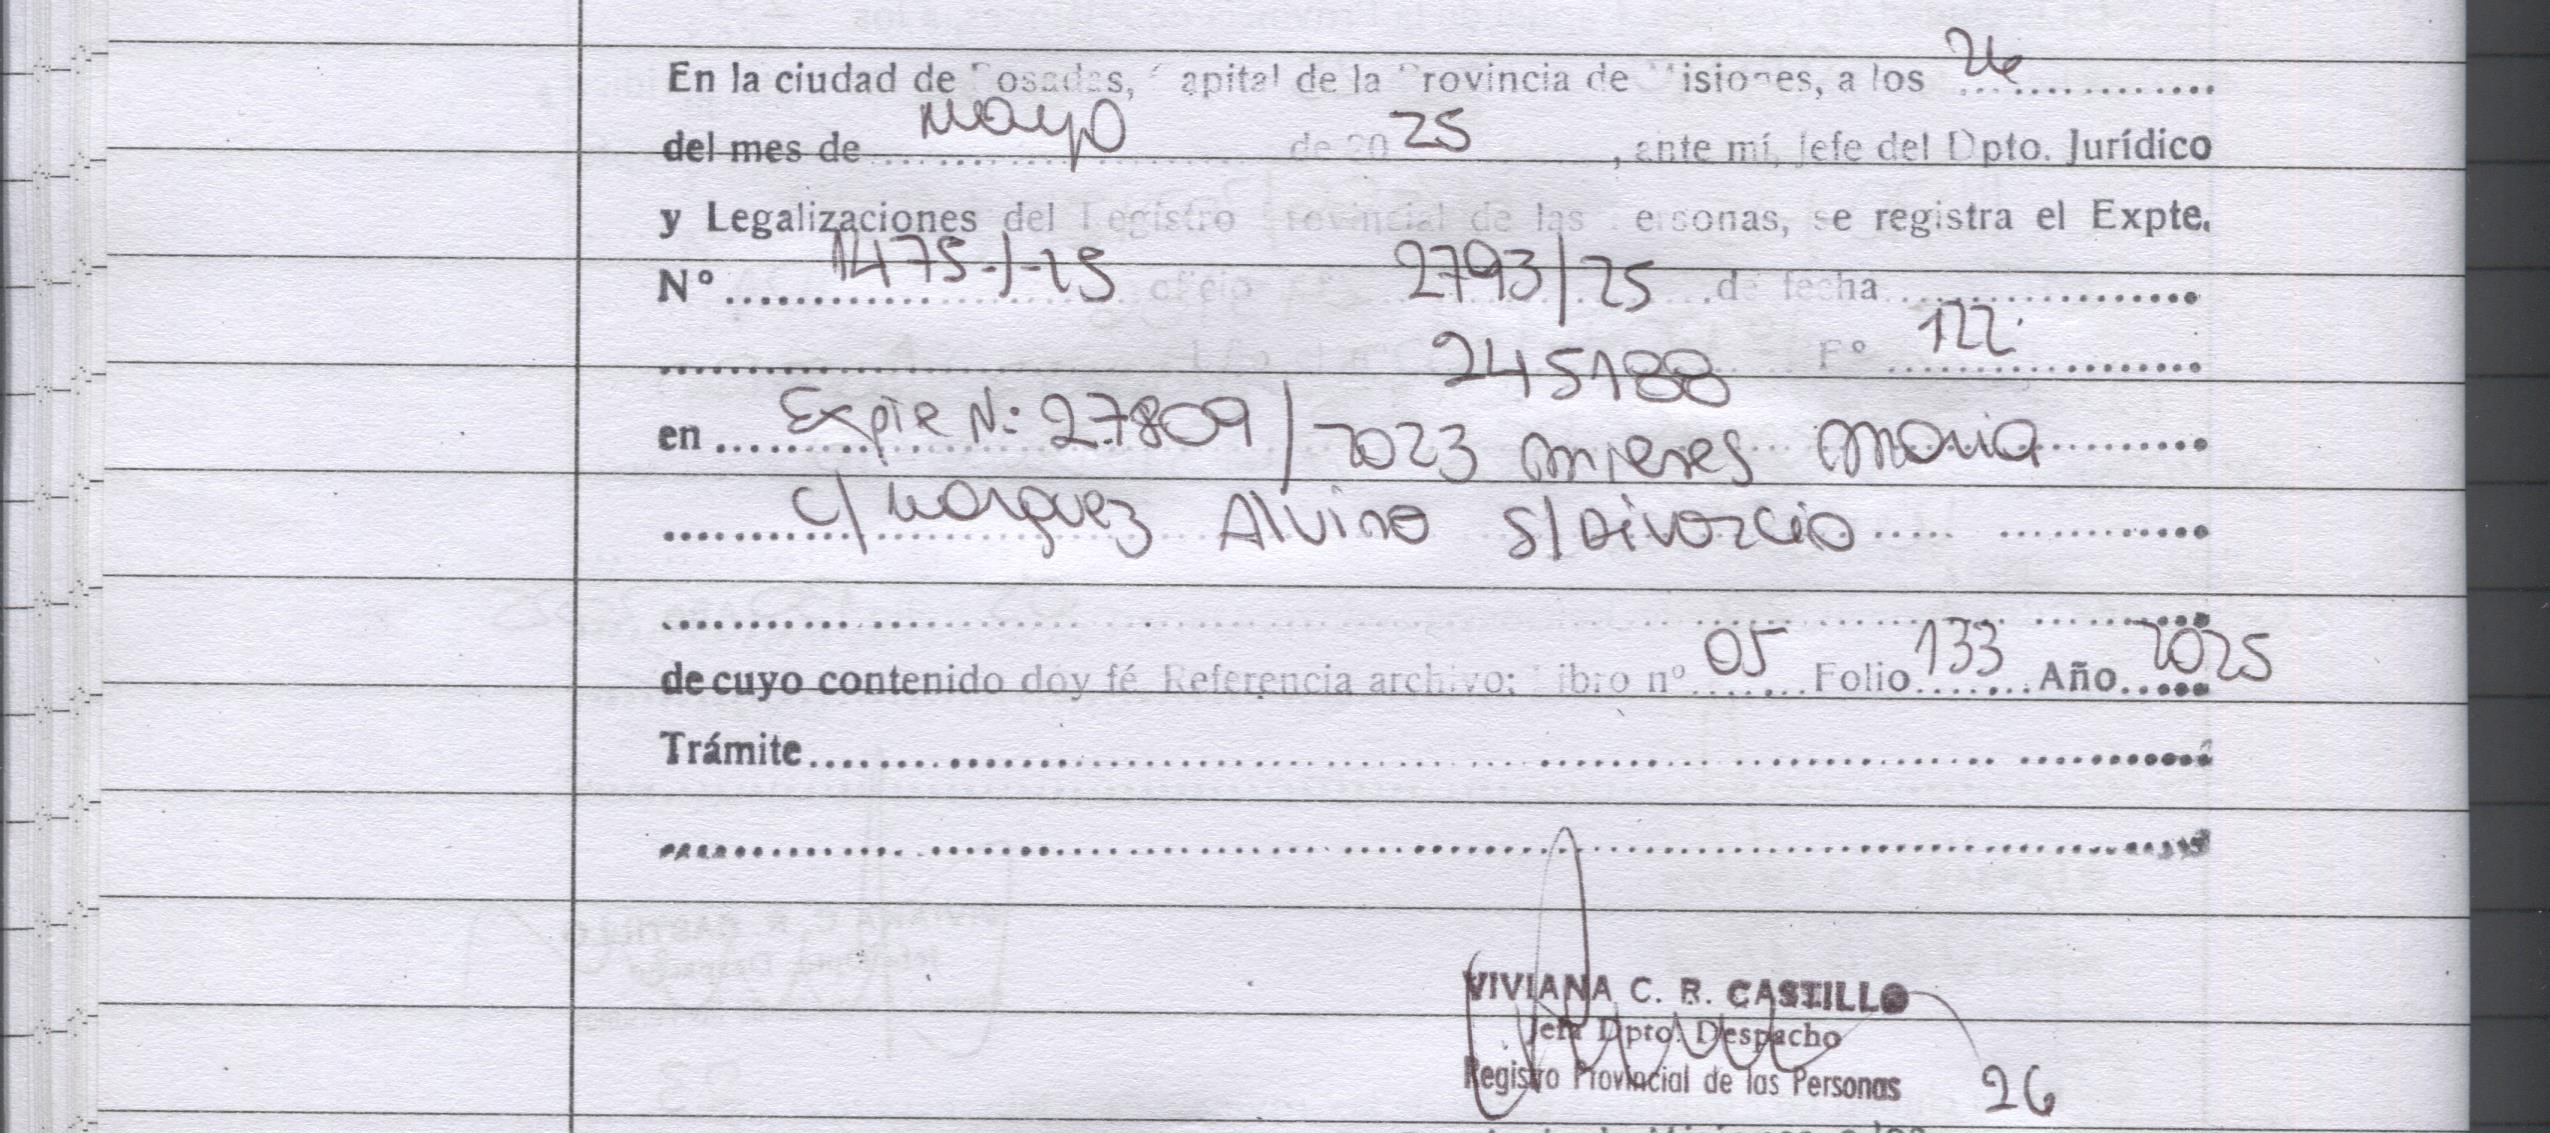 En la ciudad de Posadas, Capital de la Provincia de Misiones, a los 26
del mes de mayo de 2025, ante mí, Jefe del Dpto. Jurídico
y Legalizaciones del Registro Provincial de las Personas, se registra el Expte.
Nº 1475-/-25 oficio 2793/25 de fecha
245188 Fº 122
en Expte N: 27809/2023 Mieres Maria
c/ Marquez Alvino s/Divorcio
de cuyo contenido doy fé Referencia archivo: Libro nº 05 Folio 133 Año 2025
Trámite
VIVIANA C. R. CASTILLO
Jefa Dpto. Despacho
Registro Provincial de las Personas
26